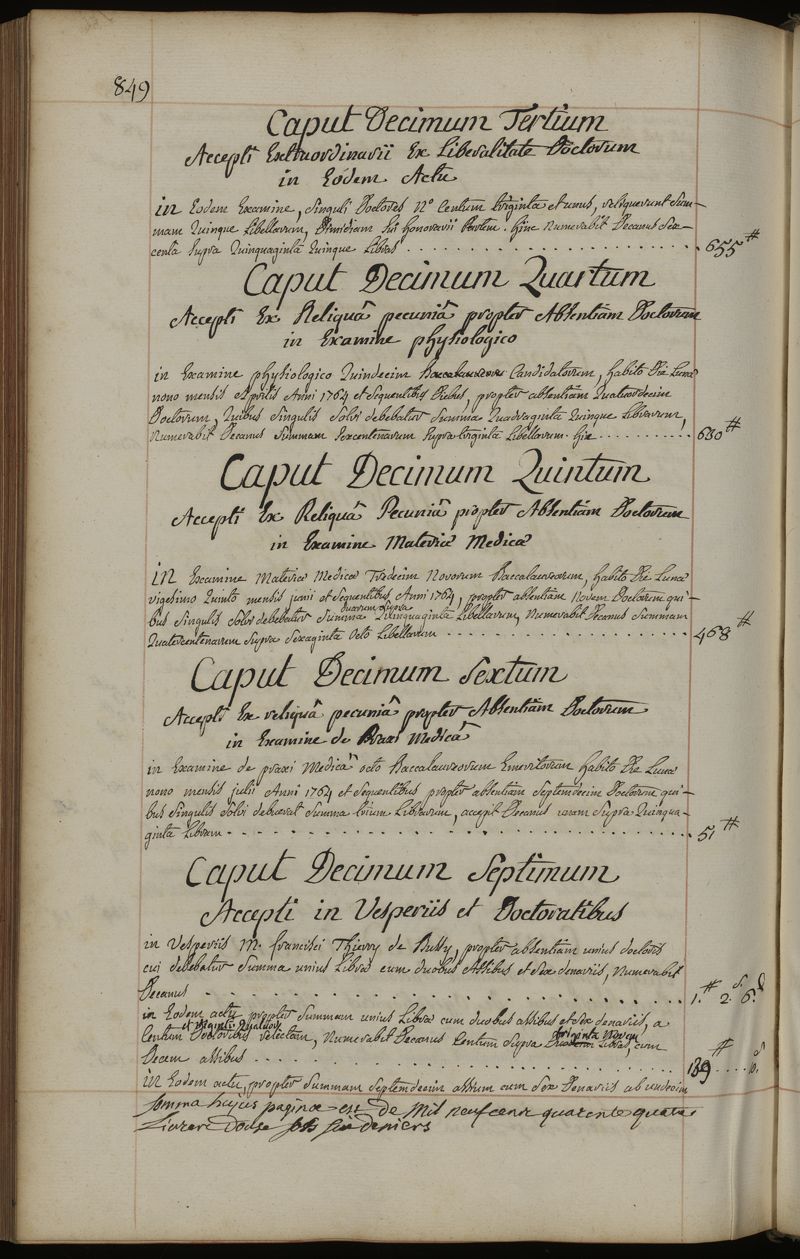 849
Caput Decimum Tertium
Accepti Extraordinarii Ex Liberalitate Doctorum
in Eodem Actu
in Eodem Examine, Singuli Doctores N° Centum triginta et unus, reliquerunt Sum-
mam Quinque Libellarum, Dimidiam sui honorarii Partem. hinc Numerabit Decanus Sex-
centa Supra Quinquaginta Quinque Libras 655#
Caput Decimum Quartum
Accepti Ex Reliquâ pecuniâ propter Absentiam Doctorum
in Examine physiologico
in Examine physiologico Quindecim Baccalaureorum Candidatorum, habito Die Lunæ
nono mensis Aprilis Anni 1764 et Sequentibus Diebus, propter absentiam Quatuordecim
Doctorum, Quibus Singulis Solvi debebatur Summa Quadraginta Quinque Librarum,
Numerabit Decanus Summam Sexcentenarum Supra triginta Libellarum. hic 630#
Caput Decimum Quintum
Accepti Ex Reliquâ Pecuniâ propter Absentiam Doctorum
in Examine Materiæ Medicæ
in Examine Materiæ Medicæ Tredecim Novorum Baccalaureorum, habito Die Lunæ
vigesimo Quinto mensis junii et Sequentibus Anni 1764, propter absentiam Novem Doctorum qui-
bus Singulis Solvi debebatur Summa duarum supra Quinquaginta Libellarum, Numerabit Decanus Summam
Quatercentenarum Supra Sexaginta Octo Libellarum 468#
Caput Decimum Sextum
Accepti Ex reliquâ pecuniâ propter Absentiam Doctorum
in Examine de Praxi Medicâ
in Examine de praxi Medicâ octo Baccalaureorum Emeritorum habito Die Lunæ
nono mensis julii Anni 1764 et Sequentibus propter absentiam Septemdecim Doctorum qui-
bus Singulis Solvi debuerat Summa trium Librarum, accepit Decanus unam Supra Quinqua-
ginta Libram 51#
Caput Decimum Septimum
Accepti in Vesperiis et Doctoratibus
in Vesperiis M. francisci Thierry de Bussy, propter absentiam unius doctoris
cui debebatur Summa unius Libræ cum duobus Assibus et Sex denariis, Numerabit
Decanus 1.# 2.s 6.d
in Eodem actu propter Summam unius Libræ cum duobus assibus et sex denariis, a
Centum et viginti Quatuor Doctoribus relectam, Numerabit Decanus Centum Supra triginta Novem Libras, cum
Decem assibus 139# 10.s
in Eodem actu, propter Summam Septemdecim assium cum Sex Denariis ab undecim
Somma hujus paginæ est De Mil neuf cent quarente quatre
Livres Douse sols six deniers